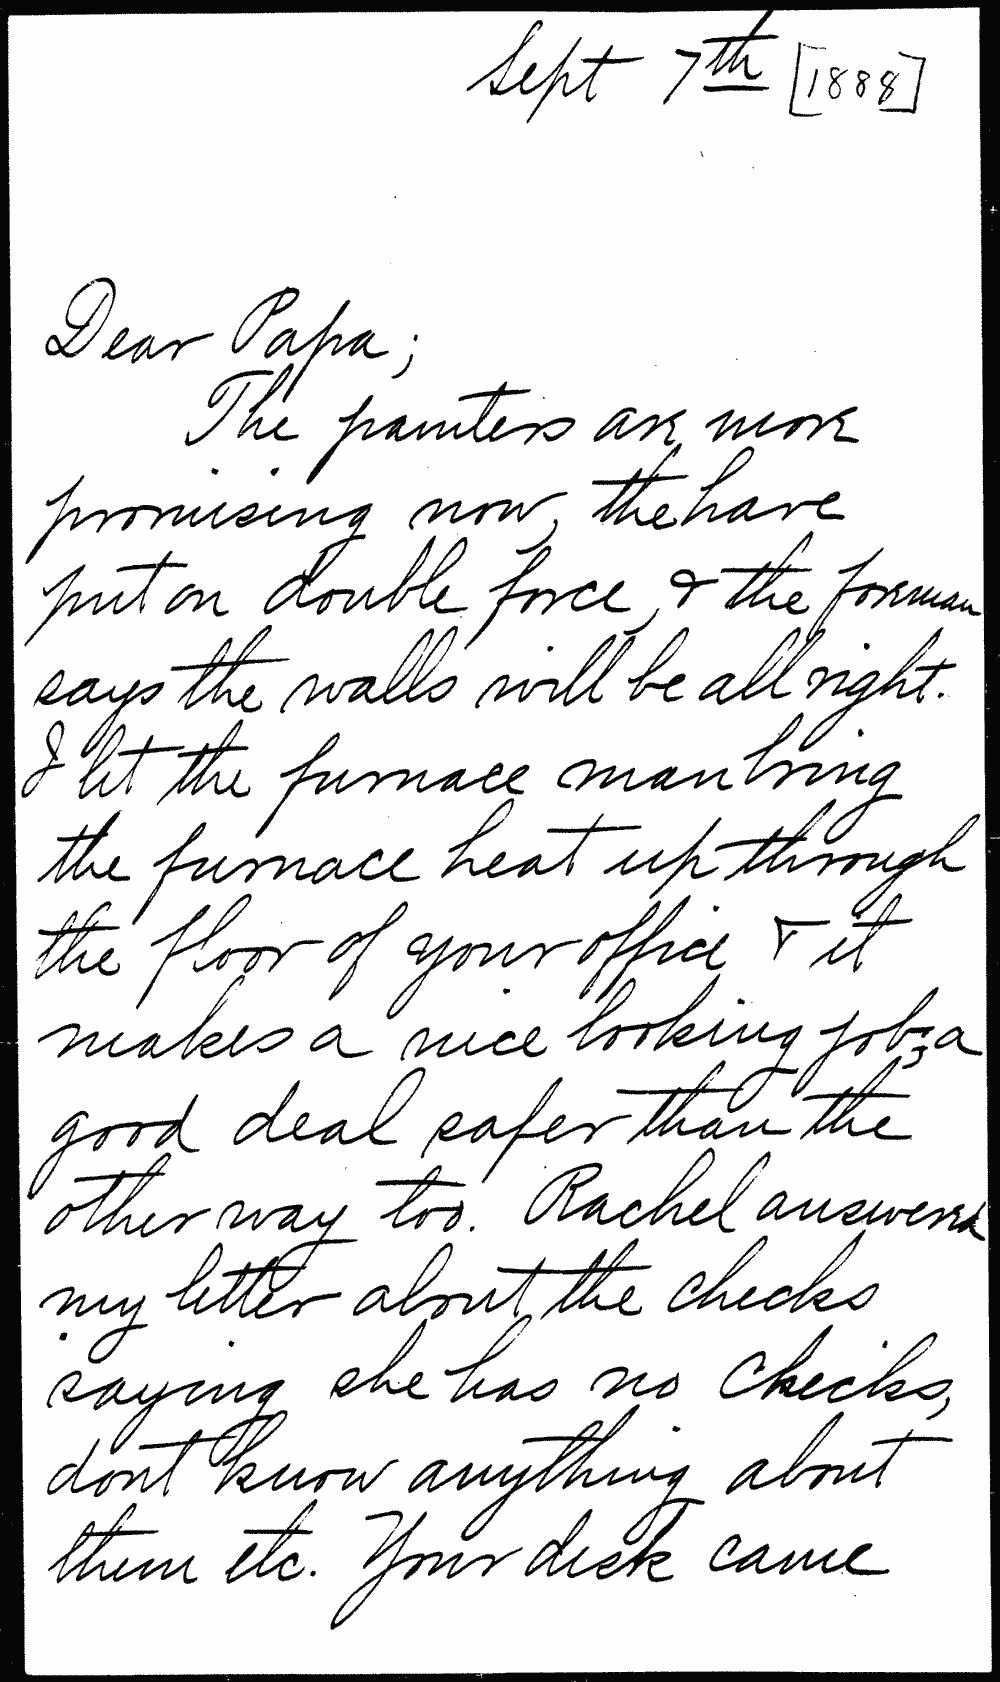 Sept 7th [1888]
Dear Papa;
The painters are more
promising now, the have
put on double force, & the foreman
says the walls will be all right.
I let the furnace man bring
the furnace heat up through
the floor of your office & it
makes a nice looking job; a
good deal safer than the
other way too. Rachel answered
my letter about the checks
saying she has no checks,
dont know anything about
them etc. Your desk came